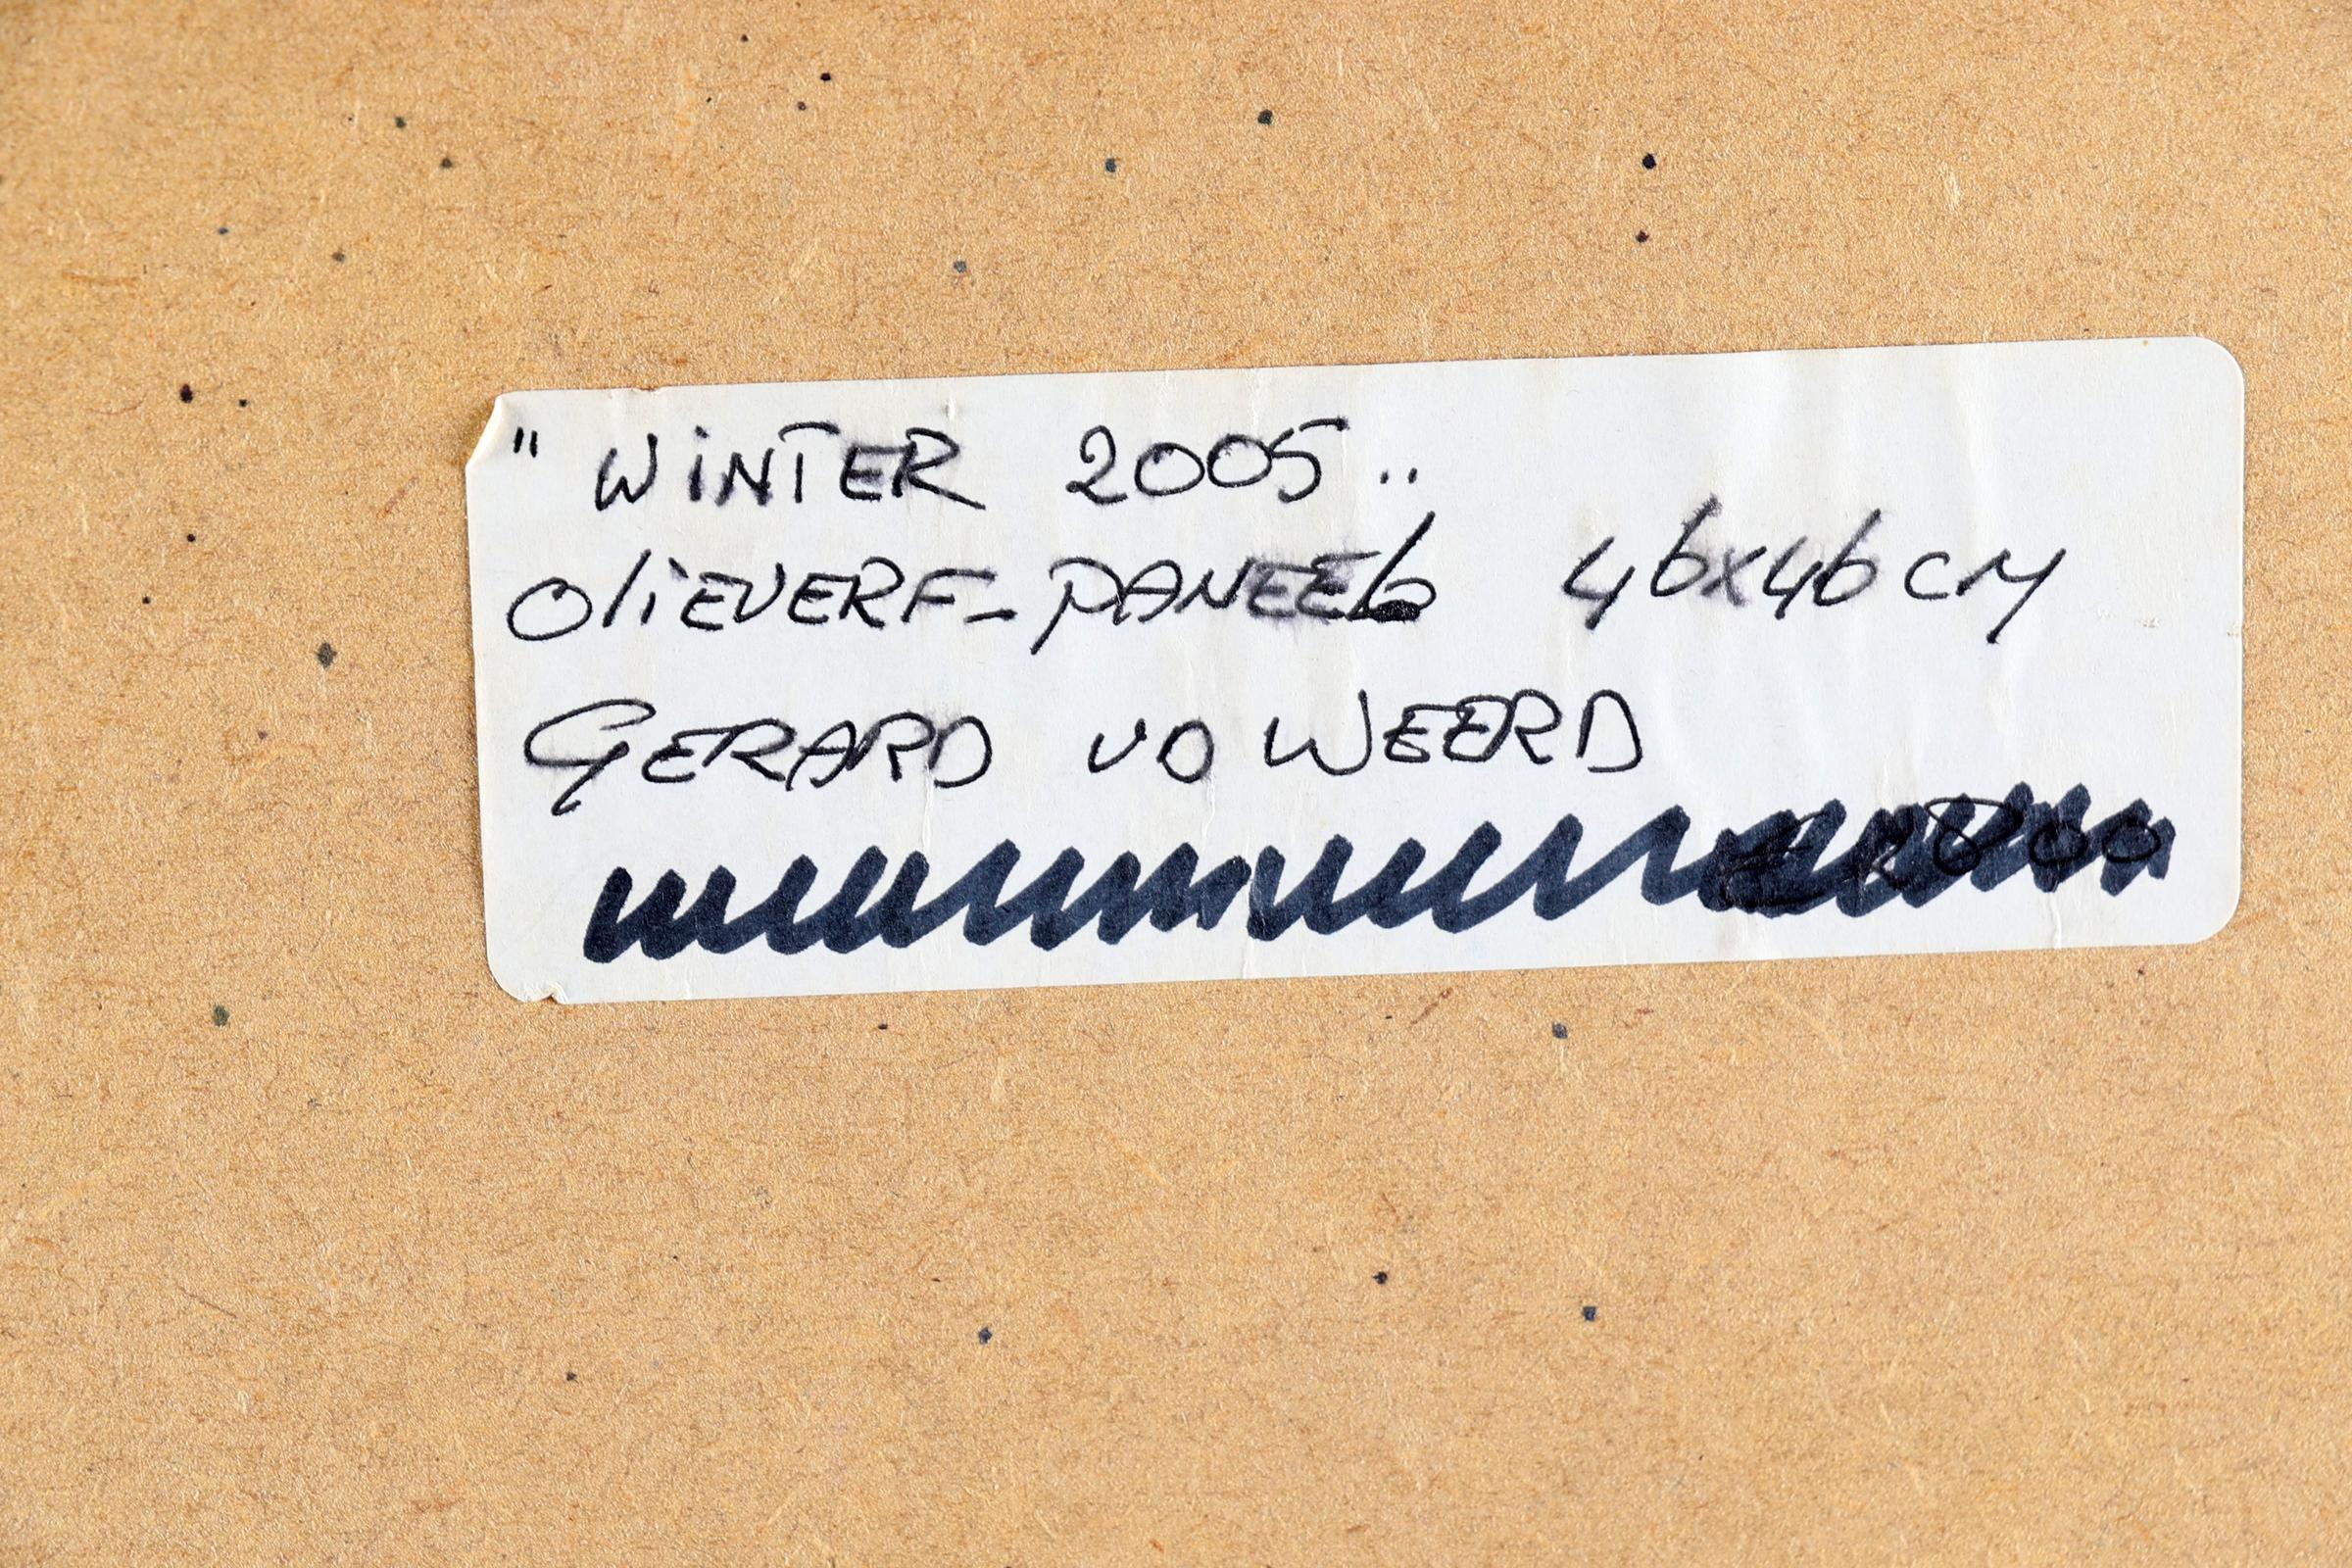 "WiNTER 2005..
OliEVERF-PANEEL 46x46 CM
GERARD VD WEERD